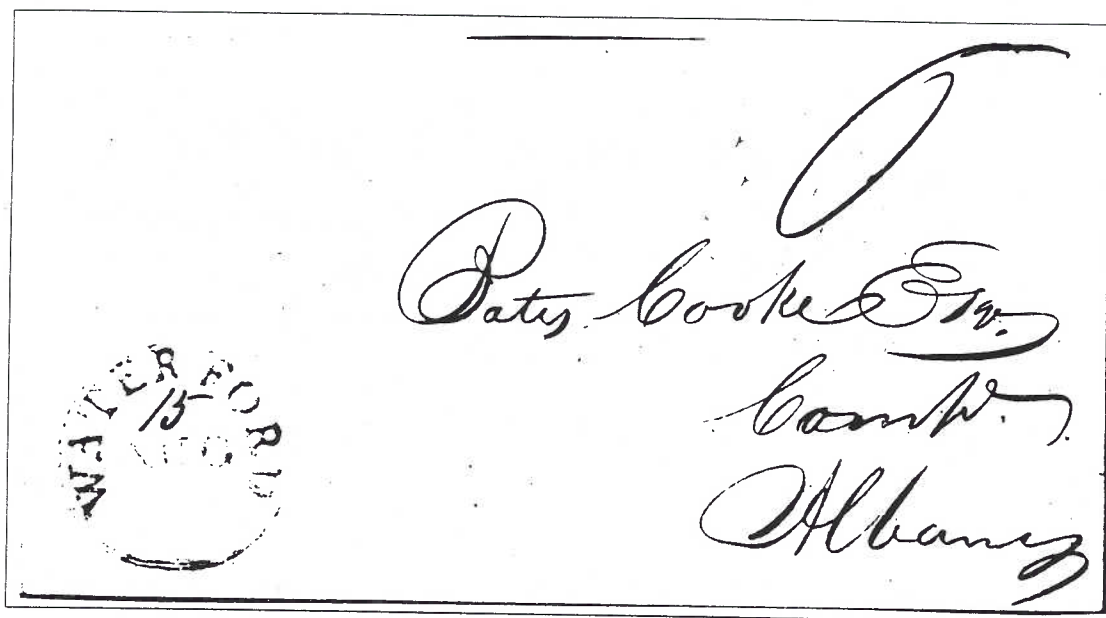 Bates Cooke Esqr.
Compt.
Albany
WATERFORD
15
AUG